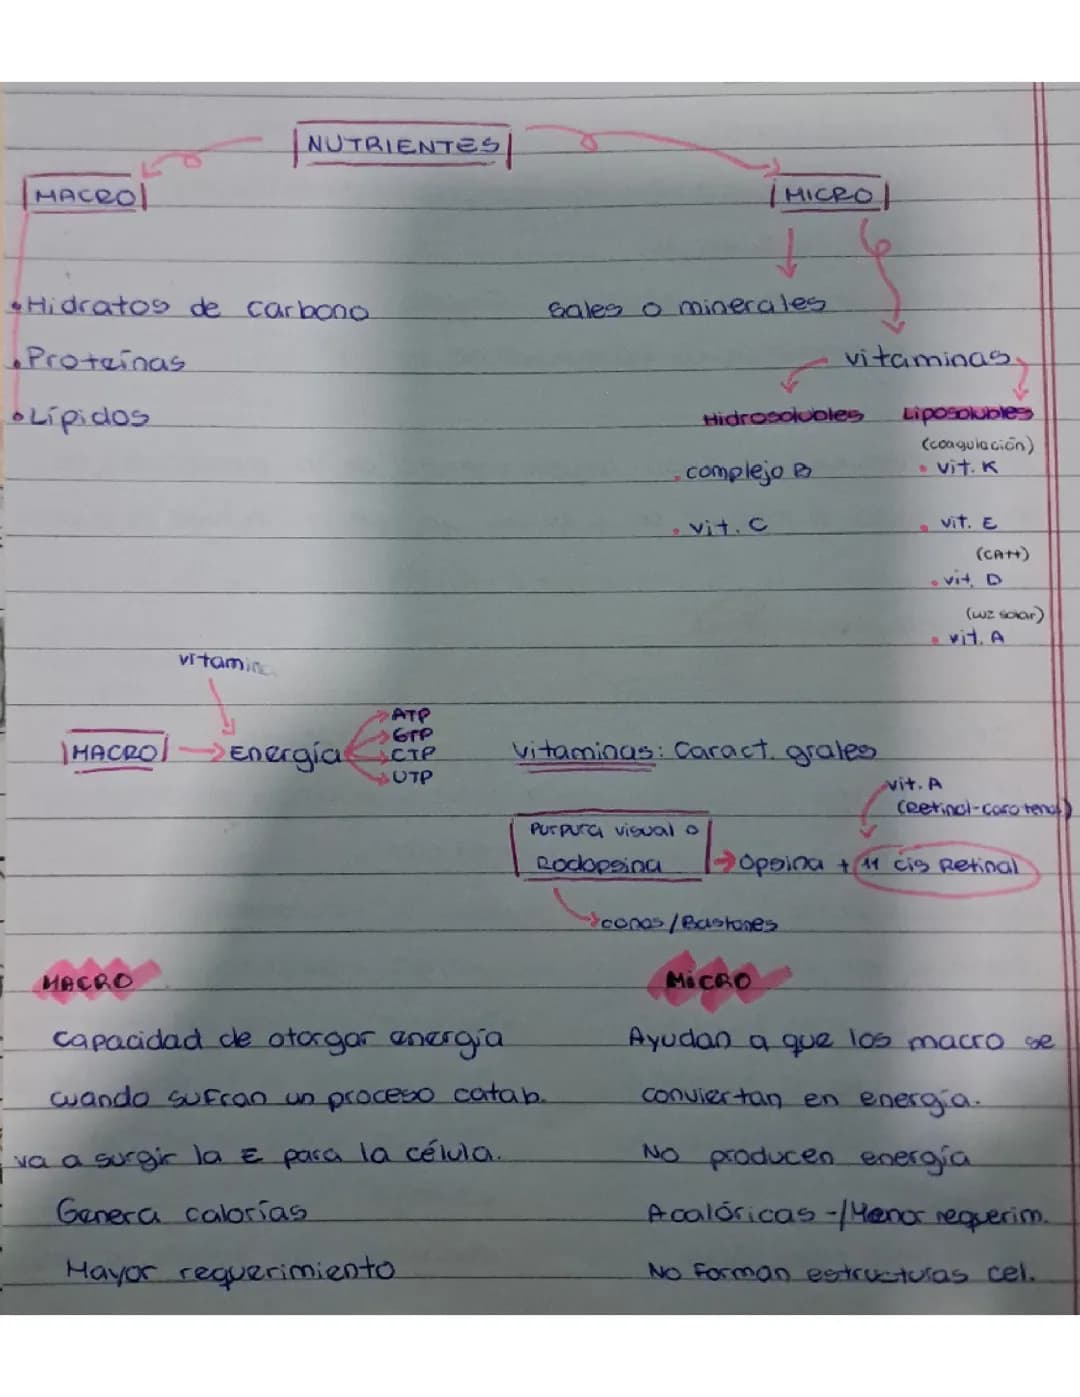 NUTRIENTES
MACRO
MICRO
Hidratos de carbono
sales o minerales
Proteínas
vitaminas
Lípidos
Hidrosolubles
Liposolubles
(coagulación)
complejo B
vit. K
vit. C
vit. E
(CA++)
vit. D
(luz solar)
vit. A
MACRO
Energía
ATP
GTP
CTP
UTP
vitaminas: Caract. grales
vit. A
(Retinol-caroteno)
Purpura visual o
Rodopsina
Opsina + 11 cis Retinal
conos/Bastones
MACRO
MiCRO
Capacidad de otorgar energía
Ayudan a que los macro se
cuando sufran un proceso catab.
conviertan en energía.
va a surgir la E para la célula.
No producen energía
Genera calorías
Acalóricas -/Menor requerim.
Mayor requerimiento
No Forman estructuras cel.